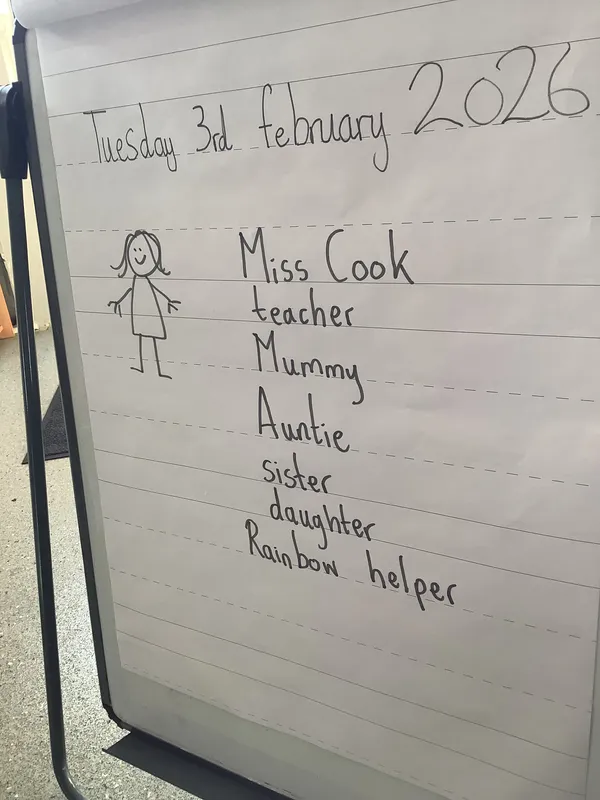 Tuesday 3rd february 2026
Miss Cook
teacher
Mummy
Auntie
sister
daughter
Rainbow helper